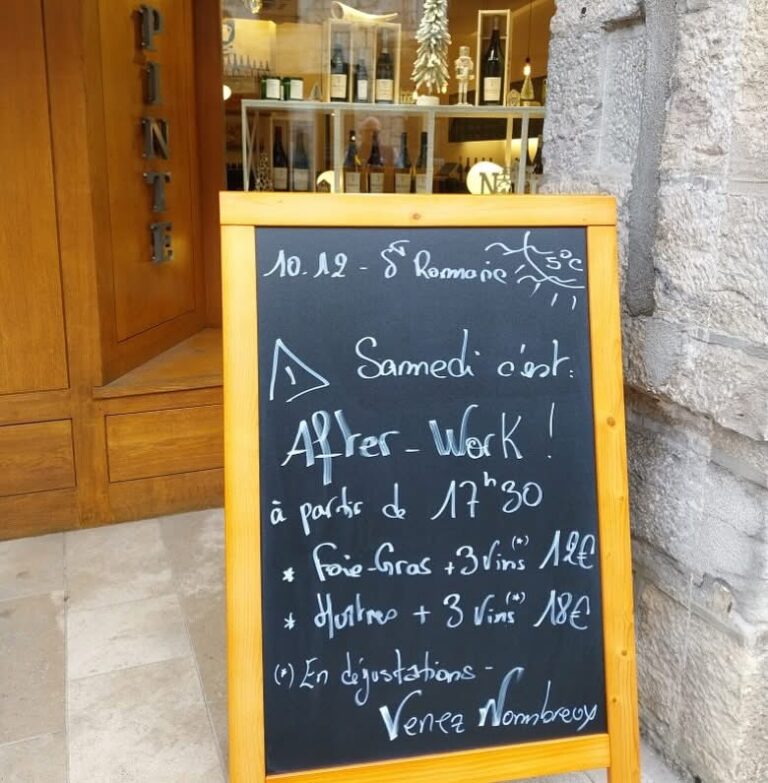 PINTE
10.12 - St Romaric 5°C
Samedi c'est:
After-Work !
à partir de 17h30
* Foie-Gras + 3 Vins (*) 12€
* Huîtres + 3 Vins (*) 18€
(*) En dégustations -
Venez Nombreux